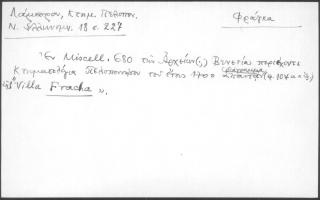 Λάμπρου, Κτημ. Πελοπον.
Φράγκα
Ν. Ἑλληνομν. 18 σ. 227
Ἐν Miscell. 680 τῶν Ἀρχείων(,) Βενετίας περιέχονται
Κτηματολόγια Πελοποννήσου τοῦ ἔτους 1700 (φ. 104
"Villa Fracha».